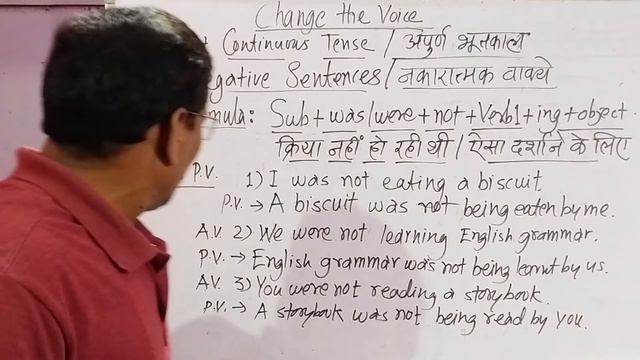 Change the Voice
Continuous Tense / अपुर्ण भूतकाल
Sentences / नकारात्मक वाक्ये
Sub + was/were + not + Verb1 + ing + object.
क्रिया नहीं हो रही थी / ऐसा दर्शाने के लिए
P.V. 1) I was not eating a biscuit.
P.V. → A biscuit was not being eaten by me.
A.V. 2) We were not learning English grammar.
P.V. → English grammar was not being learnt by us.
A.V. 3) You were not reading a storybook.
P.V. → A storybook was not being read by you.